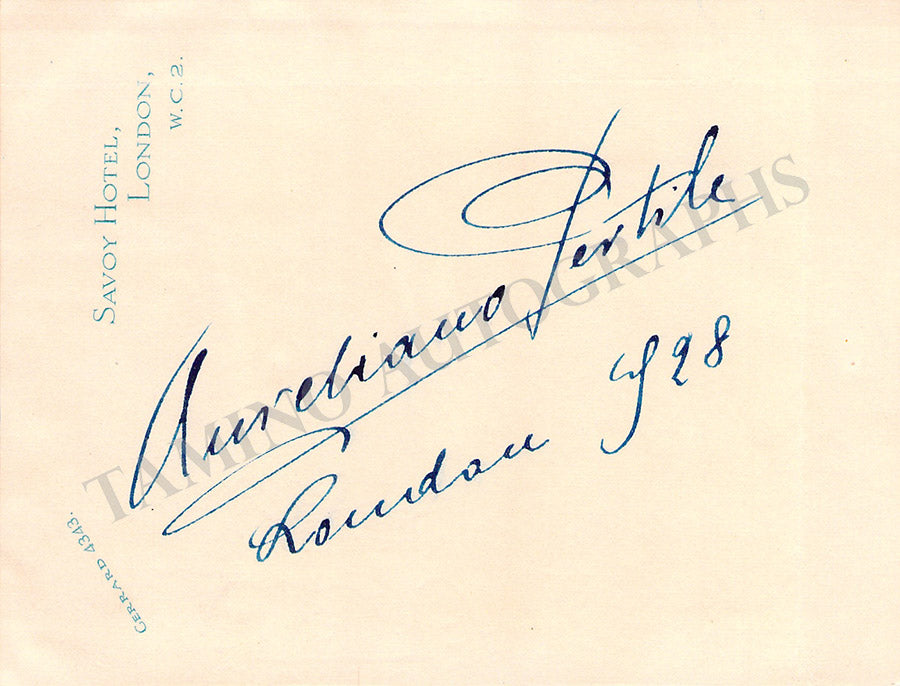 SAVOY HOTEL,
LONDON,
W.C.2.
GERRARD 4343.
Aureliano Pertile
London 928
TAMINO AUTOGRAPHS